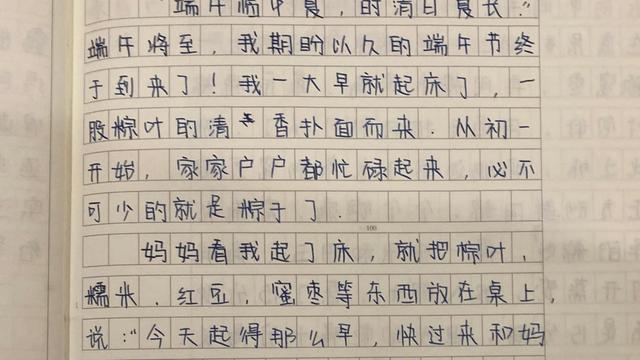 "端午临中夏，时清日复长."
端午将至，我期盼以久的端午节终
于到来了！我一大早就起床了，一
股棕叶的清香扑面而来.从初一
开始，家家户户都忙碌起来，必不
可少的就是棕于了.
100
妈妈看我起了床，就把棕叶，
糯米.红豆，蜜枣等东西放在桌上，
说："今天起得那么早，快过来和妈